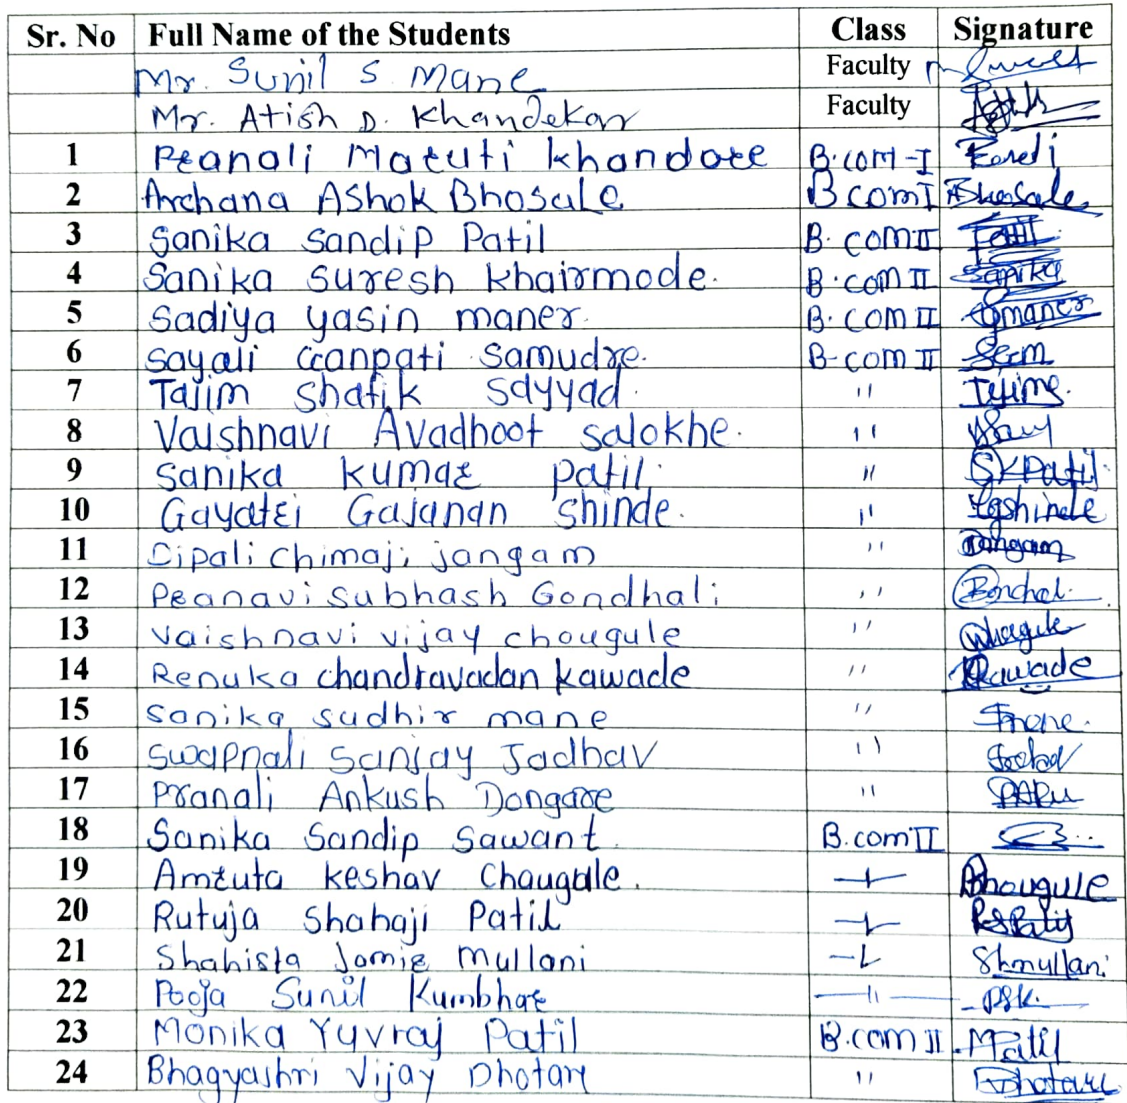 Sr. No Full Name of the Students Class Signature
Mr. Sunil S. Mane Faculty
Mr. Atish D. Khandekar Faculty
1 Pranali Maruti khandare B.com-I
2 Archana Ashok Bhosale B com I Bhosale
3 Sanika Sandip Patil B. com II Patil
4 Sanika Suresh khairmode. B.com II Sanika
5 Sadiya yasin maner. B. com II maner
6 Sayali Ganpati Samudre. B-com II
7 Tajim Shafik Sayyad. "
8 Vaishnavi Avadhoot salokhe. "
9 Sanika kumar patil. " SKPatil.
10 Gayatri Gajanan Shinde. "
11 Dipali Chimaji jangam " Jangam
12 Pranavi Subhash Gondhali "
13 Vaishnavi vijay chougule "
14 Renuka chandravadan kawade " Kawade
15 Sanika sudhir mane "
16 Swapnali Sanjay Jadhav "
17 Pranali Ankush Dongare "
18 Sanika Sandip Sawant. B.com II
19 Amruta keshav Chaugale. -"- Chougule
20 Rutuja Shahaji Patil -"- RSPatil
21 Shahista Jamir Mullani -"- Shmullani
22 Pooja Sunil Kumbhar -"- PSK.
23 Monika Yuvraj Patil B.com II Matil
24 Bhagyashri Vijay Dhotare " Dhotare